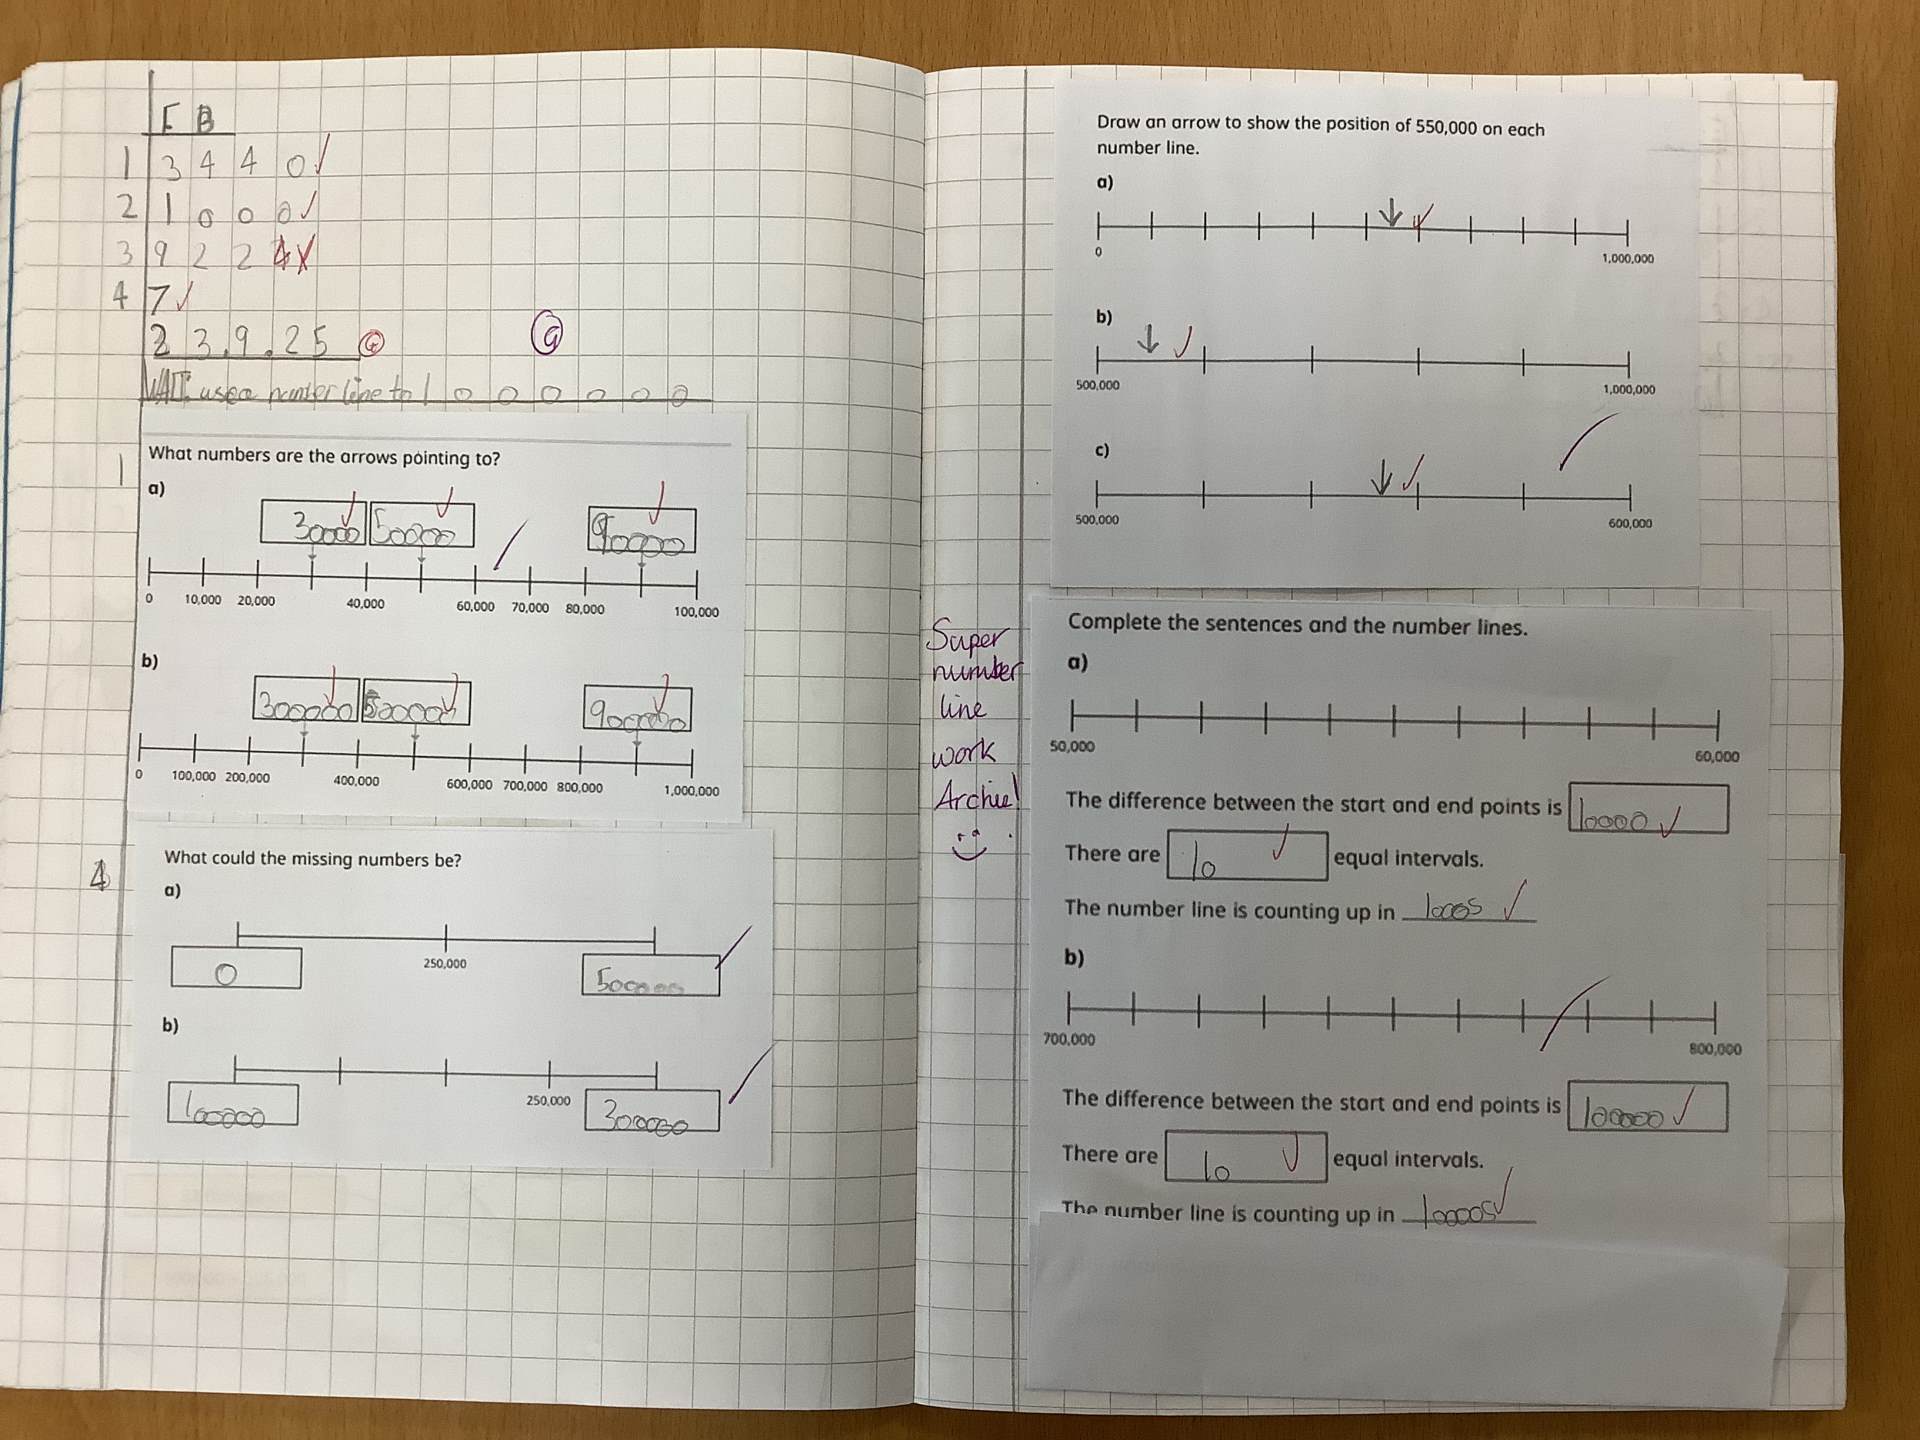 F B
1 3 4 4 0
2 1 0 0 0
3 9 2 2 4
4 7
23.9.25 G G
WALT: use a number line to 1 0 0 0 0 0 0
1 What numbers are the arrows pointing to?
a)
30000 50000 90000
0 10,000 20,000 40,000 60,000 70,000 80,000 100,000
b)
300000 500000 900000
0 100,000 200,000 400,000 600,000 700,000 800,000 1,000,000
What could the missing numbers be?
a)
250,000
0 500000
b)
250,000
100000 300000
Super
number
line
work
Archie!
Draw an arrow to show the position of 550,000 on each
number line.
a)
0 1,000,000
b)
500,000 1,000,000
c)
500,000 600,000
Complete the sentences and the number lines.
a)
50,000 60,000
The difference between the start and end points is 10000
There are 10 equal intervals.
The number line is counting up in 1000s
b)
700,000 800,000
The difference between the start and end points is 100000
There are 10 equal intervals.
The number line is counting up in 10000s